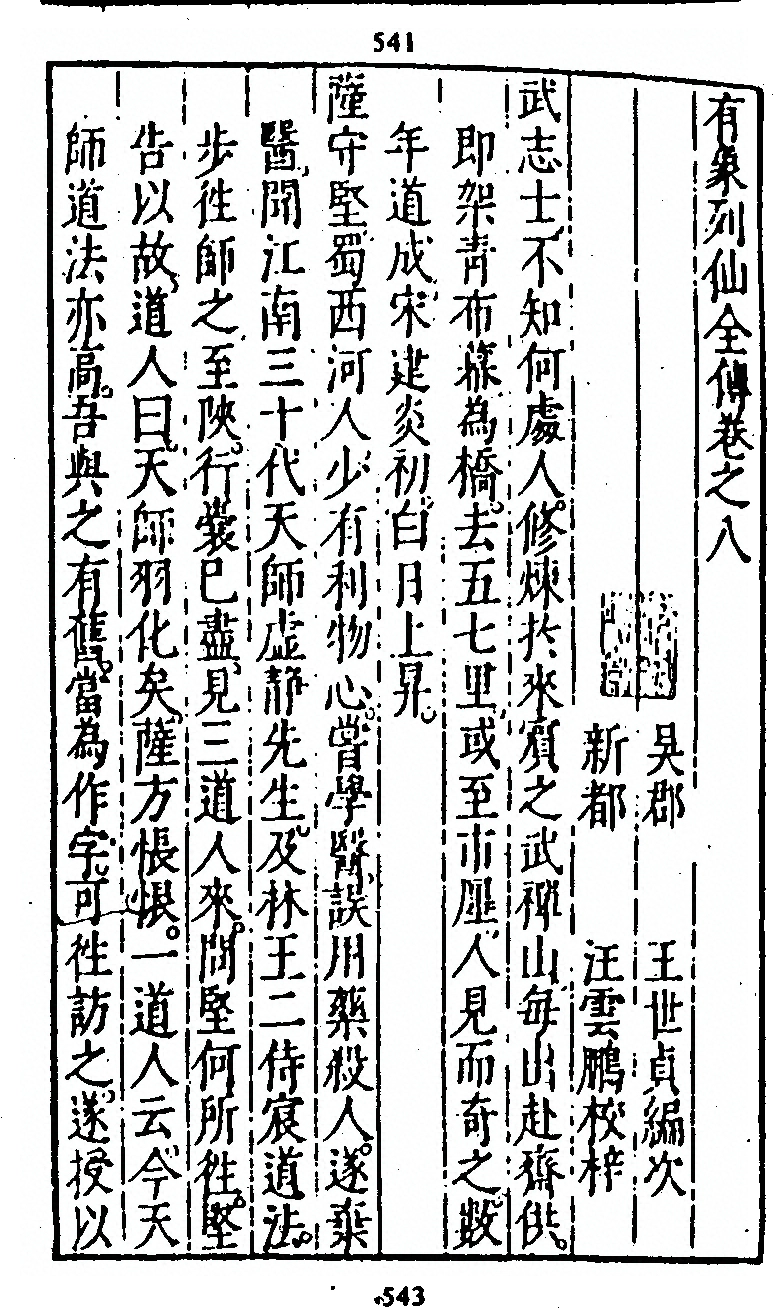 541
有象列仙全傳卷之八
吳郡　王世貞編次
新都　汪雲鵬校梓
武志士、不知何處人。修煉於來賓之武禪山、每出赴齋供。
即架青布幕為橋。去五七里、或至市廛、人見而奇之。數
年道成、宋建炎初、白日上昇。
薩守堅、蜀西河人、少有利物心。嘗學醫、誤用藥殺人。遂棄
醫、聞江南三十代天師虛靜先生、及林王二侍宸道法。
步徃師之、至陝。行囊已盡、見三道人來。問堅何所徃。堅
告以故、道人曰、天師羽化矣、薩方悵恨。一道人云、今天
師道法亦高。吾與之有舊。當為作字。可徃訪之、遂授以
543